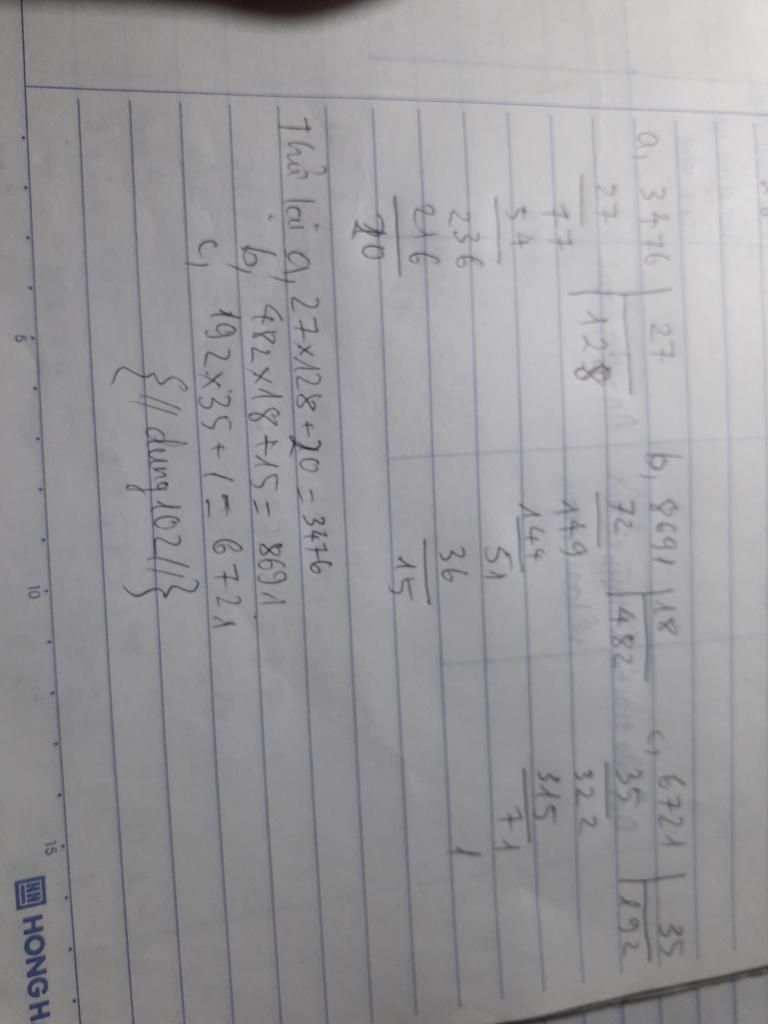 a, 3476 | 27 b, 8691 | 18 c, 6721 | 35
27 128 72 482 35 192
77 149 322
54 144 315
236 51 71
216 36 1
20 15
Thử lại a, 27 x 128 + 20 = 3476
b, 482 x 18 + 15 = 8691
c, 192 x 35 + 1 = 6721
{//dung102//}
5 10 15
HONG H